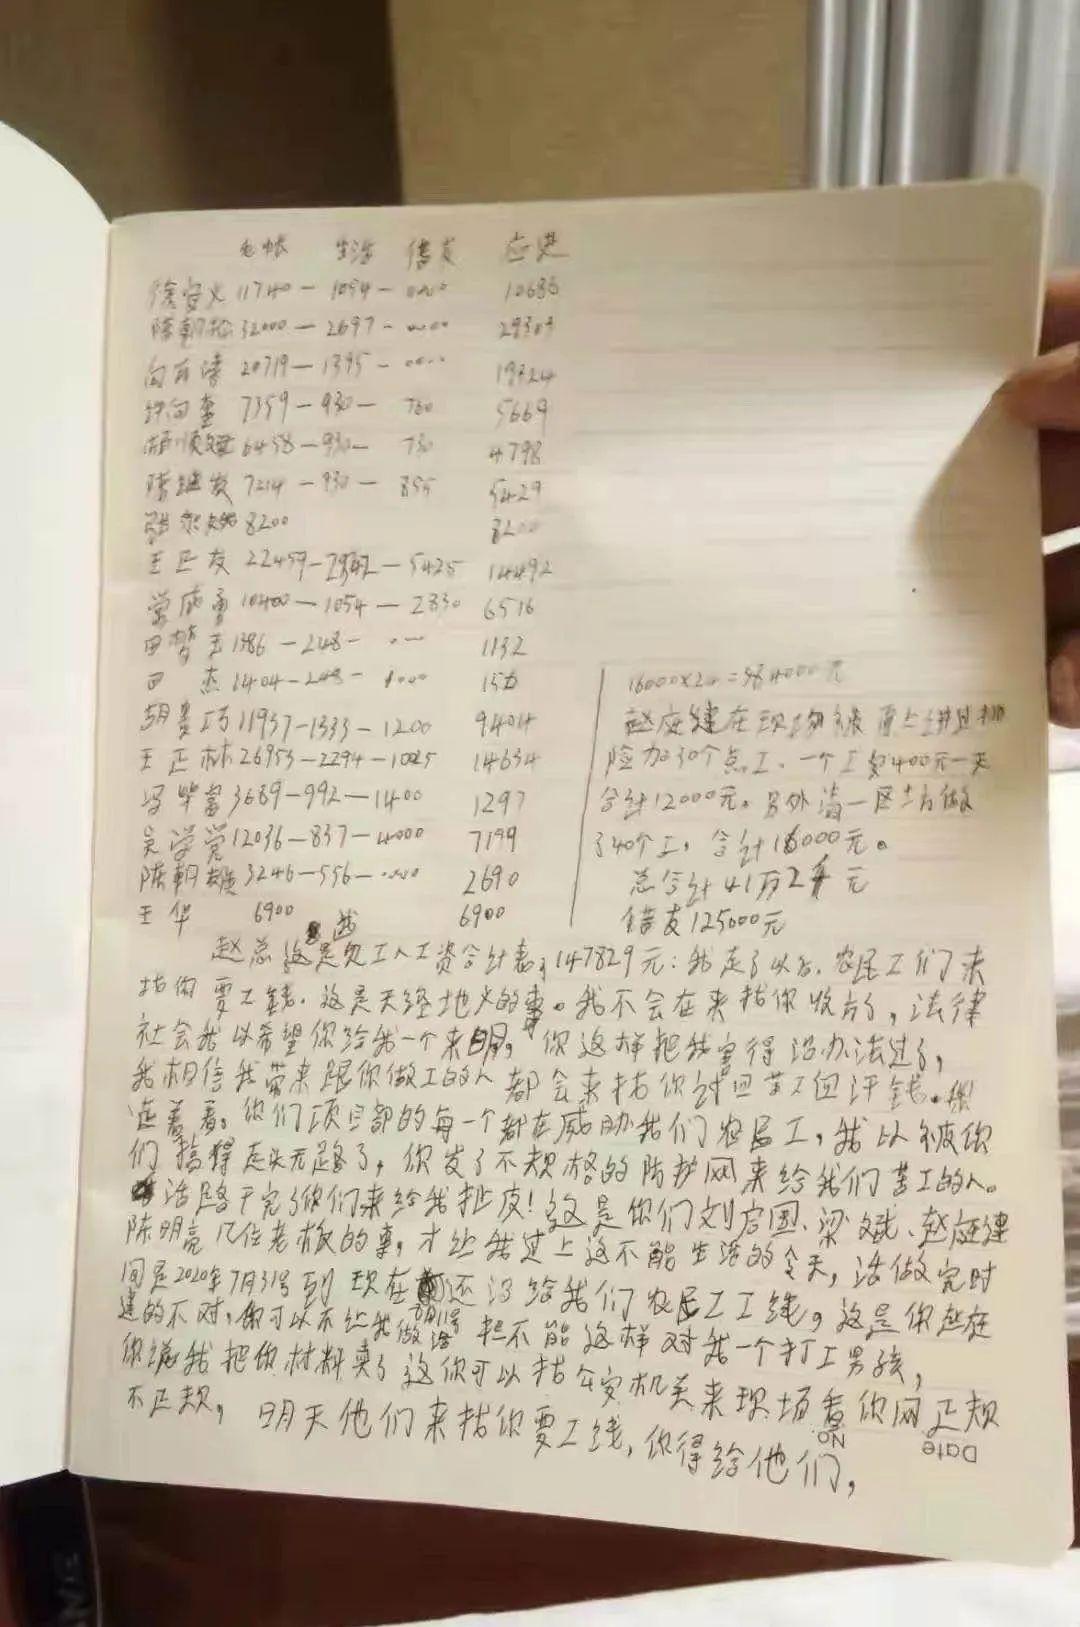 生活 借支 应进
11740 — 1054 — 0000 10686
陈朝松 32000 — 2697 — 0000 29303
20719 — 1395 — 0000 19324
7359 — 930 — 760 5669
6458 — 930 — 730 4798
陈继发 7214 — 930 — 855 5429
8200 8200
王正友 22459 — 2542 — 5425 14492
10400 — 1054 — 2830 6516
田梦王 1386 — 248 — 1132
田杰 1404 — 248 — 0000
胡贵巧 11937 — 1333 — 1200 9404
王正林 26953 — 2294 — 1025 14634
冯毕富 3689 — 992 — 1400 1297
吴学党 12036 — 837 — 4000 7199
陈朝雄 3246 — 556 — 0000 2690
王华 6900 6900
16000×24=384000元
赵庭建在现场
险加30个点工、一个工400元一天
合计12000元。另外清一区土方做
了40个工,合计16000元。
总合计41万2千元
借支125000元
赵总这是我欠工人工资合计表,147829元:我走了以后,农民工们来
找你要工钱,这是天经地义的事。我不会在来找你收方了,法律
社会我以希望你给我一个来明,你这样把我害得没办法过了,
我相信我带来跟你做工的人都会来找你讨回苦工血汗钱。你
造着看。你们项目部的每一个都在威胁我们农民工,我以被你
们搞得走头无路了,你发了不规格的防护网来给我们苦工的人。
活路干完了你们来给我扯皮!这是你们刘启国、梁斌、赵庭建
陈明亮几位老板的事,才让我过上这不能生活的今天,活做完时
间是2020年7月31号到现在还没给我们农民工工钱,这是你赵庭
建的不对,你可以不让我做活 但不能这样对我一个打工男孩,
你说我把你材料卖了这你可以找公安机关来现场看你网正规
不正规,明天他们来找你要工钱,你得给他们,
No.
Date